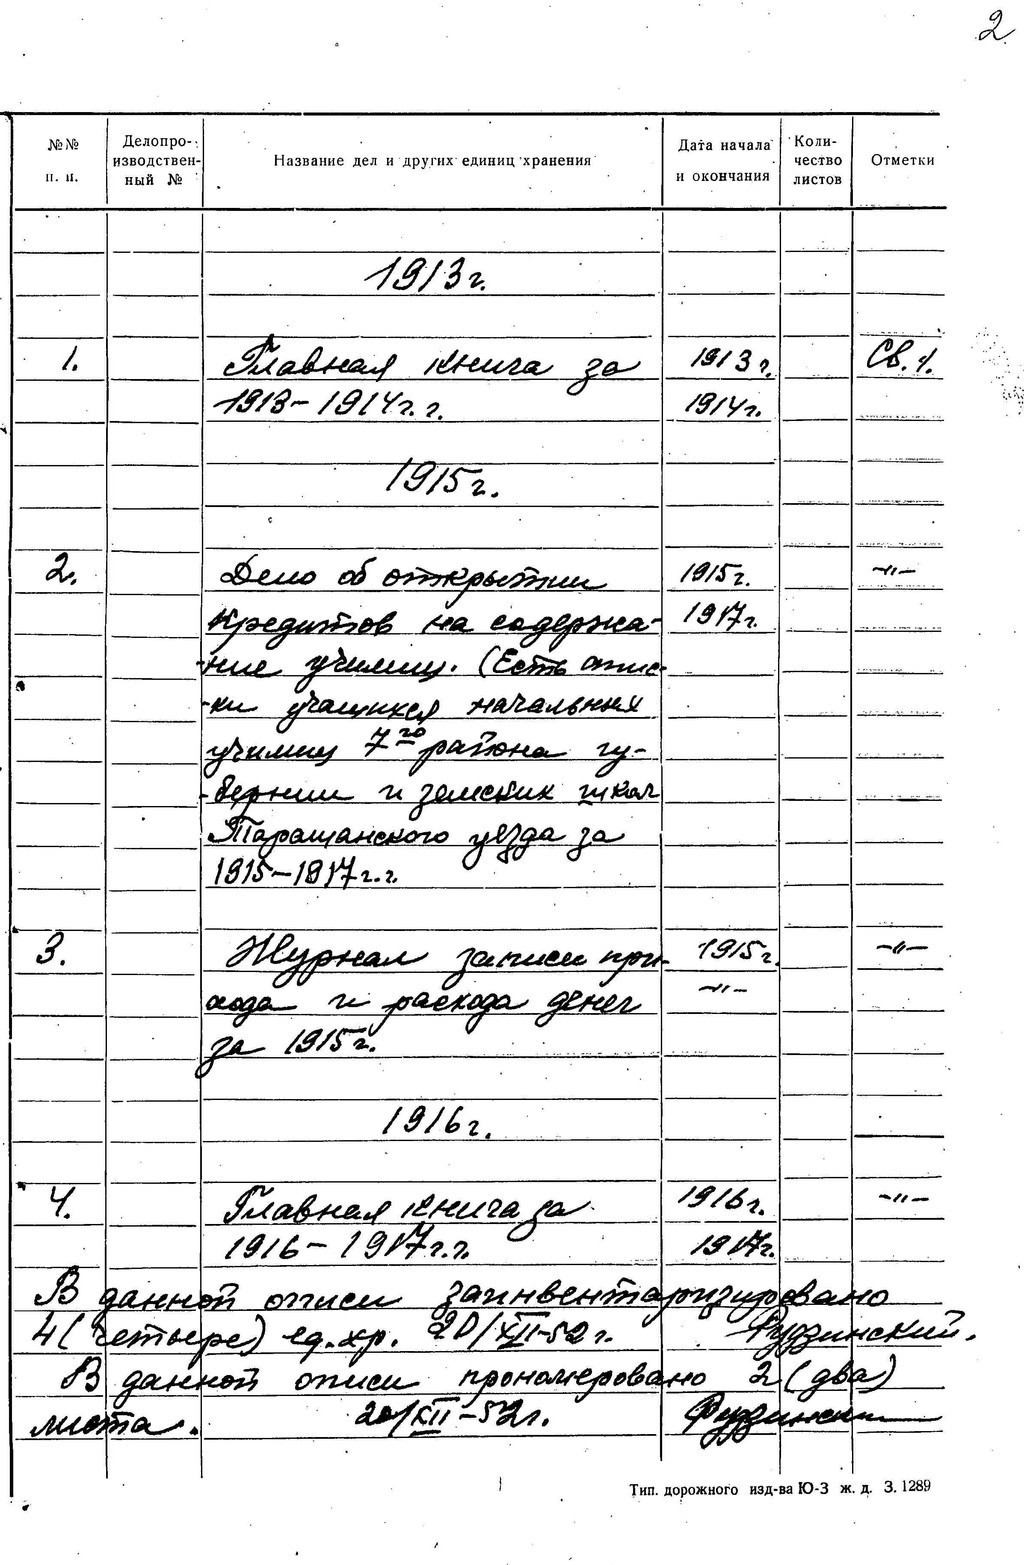 2
№№ п. п.
Делопро-
изводствен-
ный №
Название дел и других единиц хранения
Дата начала
и окончания
Коли-
чество
листов
Отметки
1913г.
1. Главная книга за 1913г. Св. 1.
1913-1914г.г. 1914г.
1915г.
2. Дело об открытии 1915г. -"-
кредитов на содержа- 1917г.
-ние училищ. (Есть спис-
-ки учащихся начальных
училищ 7го района гу-
-бернии и земских школ
Таращанского уезда за
1915-1917г.г.
3. Журнал записи при- 1915г. -"-
хода и расхода денег -"-
за 1915г.
1916г.
4. Главная книга за 1916г. -"-
1916-1917г.г. 1917г.
В данной описи заинвентаризировано
4 (четыре) ед. хр. 20/XII-52г. Рудзинский.
В данной описи прономеровано 2 (два)
листа. 20/XII-52г. Рудзинский
Тип. дорожного изд-ва Ю-З ж. д. З. 1289